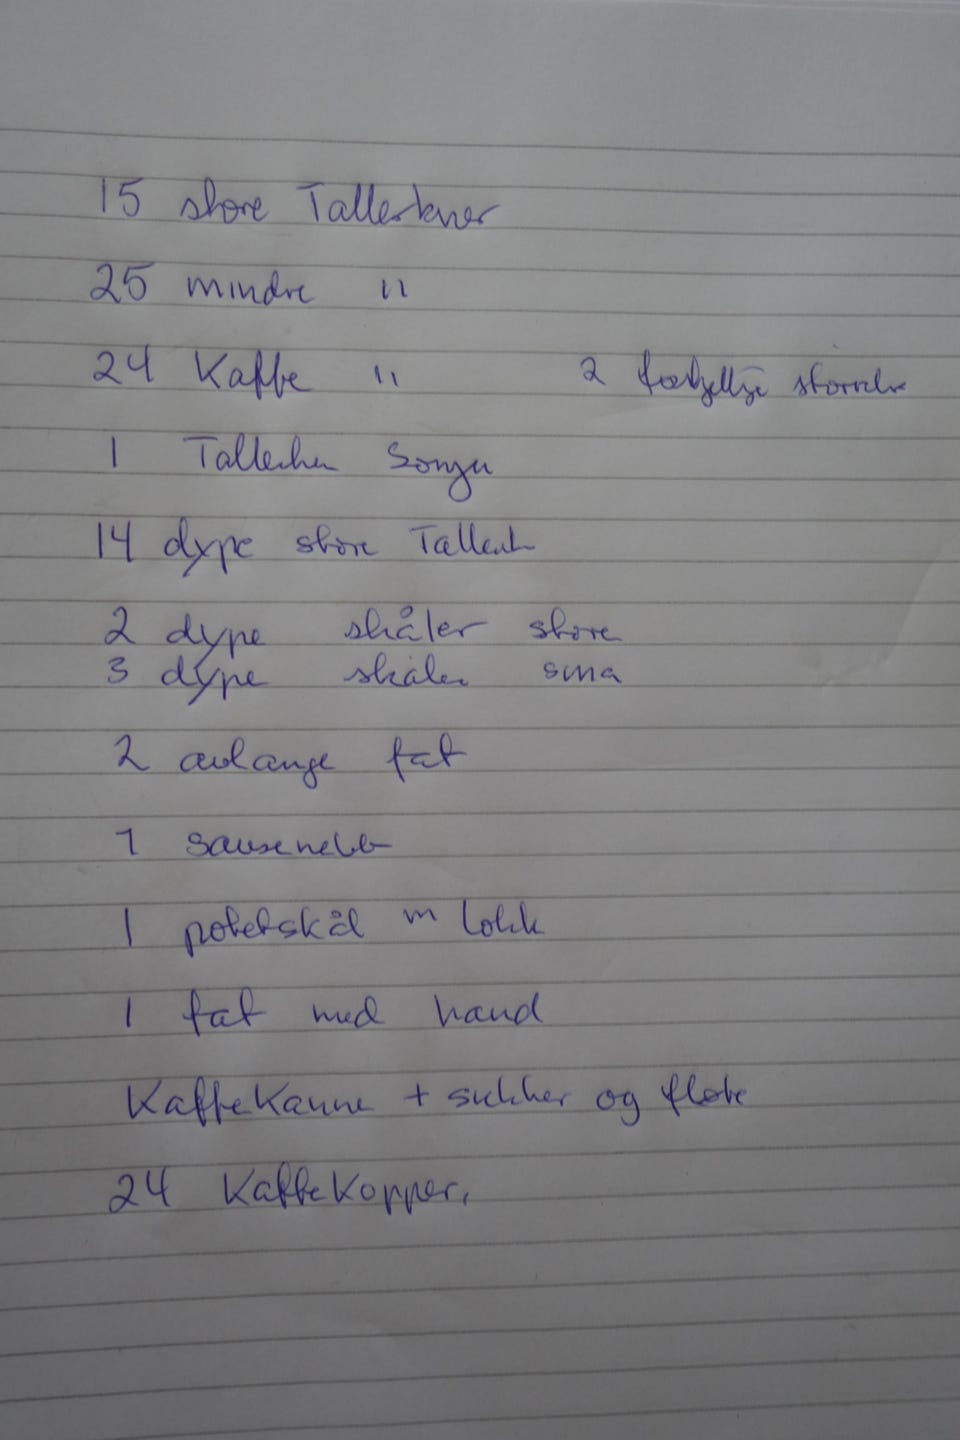 15 store Tallerkner
25 mindre "
24 Kaffe " 2 forskjellige størrelser
1 Tallerken
14 dype store Tallerk
2 dype skåler store
3 dype skåler små
2 avlange fat
1 sausenebb
1 potetskål m lokk
1 fat med hand
KaffeKanne + sukker og fløte
24 KaffeKopper.